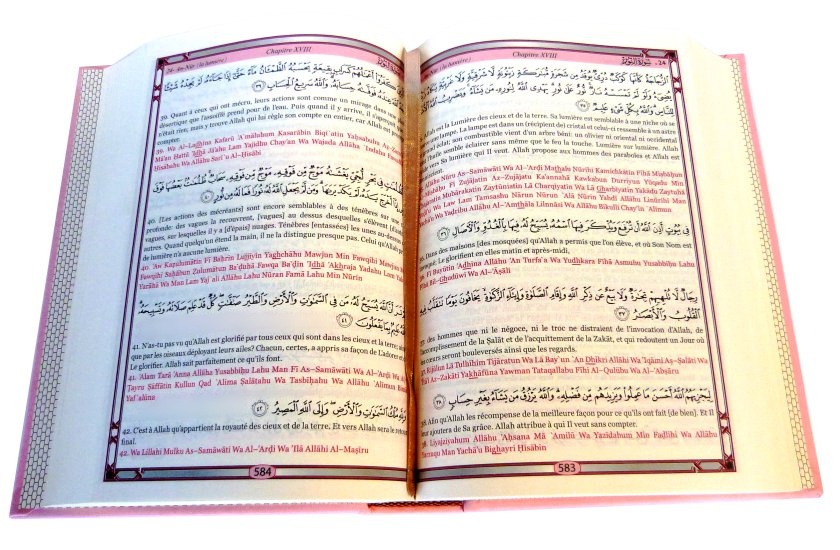 Chapitre XVIII
24- سورة النور
ٱلزُّجَاجَةُ كَأَنَّهَا كَوْكَبٌ دُرِّىٌّ يُوقَدُ مِن شَجَرَةٍ مُّبَٰرَكَةٍ زَيْتُونَةٍ لَّا شَرْقِيَّةٍ وَلَا غَرْبِيَّةٍ يَكَادُ
يُضِىٓءُ وَلَوْ لَمْ تَمْسَسْهُ نَارٌ نُّورٌ عَلَىٰ نُورٍ يَهْدِى ٱللَّهُ لِنُورِهِۦ مَن يَشَآءُ وَيَضْرِبُ ٱللَّهُ
لِلنَّاسِ وَٱللَّهُ بِكُلِّ شَىْءٍ عَلِيمٌ ٣٥
est la Lumière des cieux et de la terre. Sa lumière est semblable à une niche où se
une lampe. La lampe est dans un (récipient de) cristal et celui-ci ressemble à un astre
éclat; son combustible vient d'un arbre béni: un olivier ni oriental ni occidental
l'huile semble éclairer sans même que le feu la touche. Lumière sur lumière. Allah
vers Sa lumière qui Il veut. Allah propose aux hommes des paraboles et Allah est
Allāhu Nūru As–Samāwāti Wa Al–'Arđi Mathalu Nūrihi Kamichkātin Fīhā Mişbāĥun
Mişbāĥu Fī Zujājatin Az–Zujājatu Ka'annahā Kawkabun Durrīyun Yūqadu Min
Mubārakatin Zaytūniatin Lā Charqīyatin Wa Lā Gharbīyatin Yakādu Zaytuhā
Wa Law Lam Tamsas/hu Nārun Nūrun 'Alá Nūrin Yahdī Allāhu Linūrihi Man
Wa Yađribu Allāhu Al–'Amthāla Lilnnāsi Wa Allāhu Bikulli Chay'in 'Alīmun
فِى بُيُوتٍ أَذِنَ ٱللَّهُ أَن تُرْفَعَ وَيُذْكَرَ فِيهَا ٱسْمُهُۥ يُسَبِّحُ لَهُۥ فِيهَا بِٱلْغُدُوِّ وَٱلْءَاصَالِ ٣٦
Dans des maisons [des mosquées] qu'Allah a permis que l'on élève, et où Son Nom est
Le glorifient en elles matin et après-midi.
Fī Buyūtin 'Adhina Allāhu 'An Turfa'a Wa Yudhkara Fīhā Asmuhu Yusabbiĥu Lahu
Bil–Ghudūwi Wa Al–'Āşāli
رِجَالٌ لَّا تُلْهِيهِمْ تِجَٰرَةٌ وَلَا بَيْعٌ عَن ذِكْرِ ٱللَّهِ وَإِقَامِ ٱلصَّلَوٰةِ وَإِيتَآءِ ٱلزَّكَوٰةِ يَخَافُونَ يَوْمًا تَتَقَلَّبُ فِيهِ
ٱلْقُلُوبُ وَٱلْأَبْصَٰرُ ٣٧
37. des hommes que ni le négoce, ni le troc ne distraient de l'invocation d'Allah, de
l'accomplissement de la Şalāt et de l'acquittement de la Zakāt, et qui redoutent un Jour où
cœurs seront bouleversés ainsi que les regards.
Rijālun Lā Tulhīhim Tijāratun Wa Lā Bay'un 'An Dhikri Allāhi Wa 'Iqāmi Aş–Şalāati Wa
Az–Zakāti Yakhāfūna Yawman Tataqallabu Fīhi Al–Qulūbu Wa Al–'Abşāru
لِيَجْزِيَهُمُ ٱللَّهُ أَحْسَنَ مَا عَمِلُوا۟ وَيَزِيدَهُم مِّن فَضْلِهِۦ وَٱللَّهُ يَرْزُقُ مَن يَشَآءُ بِغَيْرِ حِسَابٍ ٣٨
38. Afin qu'Allah les récompense de la meilleure façon pour ce qu'ils ont fait [de bien]. Et Il
leur ajoutera de Sa grâce. Allah attribue à qui Il veut sans compter.
38. Liyajziyahum Allāhu 'Aĥsana Mā 'Amilū Wa Yazīdahum Min Fađlihi Wa Allāhu
Yarzuqu Man Yachā'u Bighayri Ĥisābin
583
Chapitre XVIII
24- An-Nūr (la lumière)
كَفَرُوٓا۟ أَعْمَٰلُهُمْ كَسَرَابٍۭ بِقِيعَةٍ يَحْسَبُهُ ٱلظَّمْـَٔانُ مَآءً حَتَّىٰٓ إِذَا جَآءَهُۥ لَمْ يَجِدْهُ شَيْـًٔا
ٱللَّهَ عِندَهُۥ فَوَفَّىٰهُ حِسَابَهُۥ وَٱللَّهُ سَرِيعُ ٱلْحِسَابِ ٣٩
39. Quant à ceux qui ont mécru, leurs actions sont comme un mirage dans une
désertique que l'assoiffé prend pour de l'eau. Puis quand il y arrive, il s'aperçoit
n'était rien, mais y trouve Allah qui lui règle son compte en entier, car Allah est prompt
compter.
39. Wa Al–Ladhīna Kafarū 'A'māluhum Kasarābin Biqī'atin Yaĥsabuhu Až–
Mā'an Ĥattá 'Idhā Jā'ahu Lam Yajid/hu Chay'an Wa Wajada Allāha 'Indahu
Ĥisābahu Wa Allāhu Sarī'u Al–Ĥisābi
فِى بَحْرٍ لُّجِّىٍّ يَغْشَىٰهُ مَوْجٌ مِّن فَوْقِهِۦ مَوْجٌ مِّن فَوْقِهِۦ سَحَابٌ ظُلُمَٰتٌۢ بَعْضُهَا فَوْقَ
إِذَآ أَخْرَجَ يَدَهُۥ لَمْ يَكَدْ يَرَىٰهَا وَمَن لَّمْ يَجْعَلِ ٱللَّهُ لَهُۥ نُورًا فَمَا لَهُۥ مِن نُّورٍ ٤٠
40. [Les actions des mécréants] sont encore semblables à des ténèbres sur une
profonde: des vagues la recouvrent, [vagues] au dessus desquelles s'élèvent
vagues, sur lesquelles il y a [d'épais] nuages. Ténèbres [entassées] les unes au-dessus
autres. Quand quelqu'un étend la main, il ne la distingue presque pas. Celui qu'Allah
de lumière n'a aucune lumière.
40. 'Aw Kažulumātin Fī Baĥrin Lujjīyin Yaghchāhu Mawjun Min Fawqihi Mawjun
Fawqihi Saĥābun Žulumātun Ba'đuhā Fawqa Ba'đin 'Idhā 'Akhraja Yadahu Lam
Yarāhā Wa Man Lam Yaj'ali Allāhu Lahu Nūran Famā Lahu Min Nūrin
تَرَ أَنَّ ٱللَّهَ يُسَبِّحُ لَهُۥ مَن فِى ٱلسَّمَٰوَٰتِ وَٱلْأَرْضِ وَٱلطَّيْرُ صَٰٓفَّٰتٍ كُلٌّ قَدْ عَلِمَ صَلَاتَهُۥ وَتَسْبِيحَهُۥ
عَلِيمٌۢ بِمَا يَفْعَلُونَ ٤١
41. N'as-tu pas vu qu'Allah est glorifié par tous ceux qui sont dans les cieux et la terre; ainsi
que par les oiseaux déployant leurs ailes? Chacun, certes, a appris sa façon de L'adorer et
Le glorifier. Allah sait parfaitement ce qu'ils font.
41. 'Alam Tará 'Anna Allāha Yusabbiĥu Lahu Man Fī As–Samāwāti Wa Al–'Arđi Wa
Ţayru Şāffātin Kullun Qad 'Alima Şalātahu Wa Tasbīĥahu Wa Allāhu 'Alīmun Bimā
Yaf'alūna
مُلْكُ ٱلسَّمَٰوَٰتِ وَٱلْأَرْضِ وَإِلَى ٱللَّهِ ٱلْمَصِيرُ ٤٢
42. C'est à Allah qu'appartient la royauté des cieux et de la terre. Et vers Allah sera le retour
final.
42. Wa Lillahi Mulku As–Samāwāti Wa Al–'Arđi Wa 'Ilá Allāhi Al–Maşīru
584